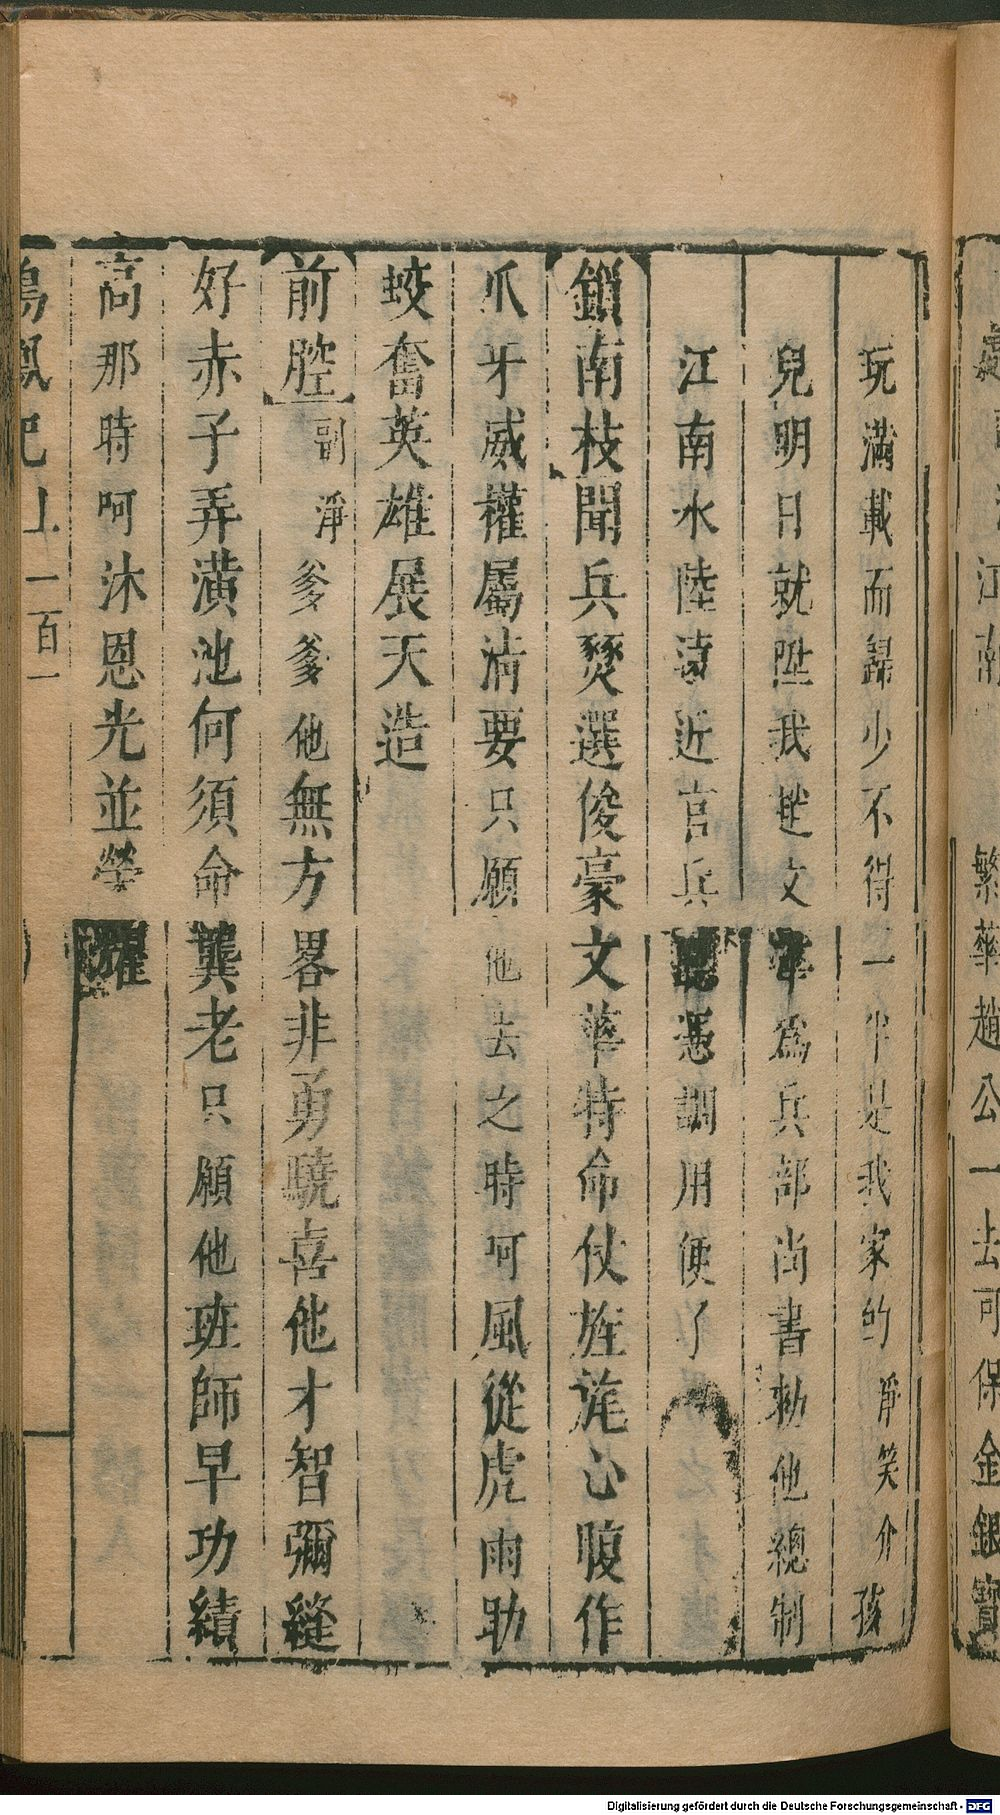 繁華趙公一去可保金銀寶
玩滿載而歸少不得一半是我家的淨笑介孩
兒明日就陞我趙文華爲兵部尚書勑他總制
江南水陸遠近官兵聽憑調用便了
鎖南枝聞兵燹選俊豪文華特命仗旌旄心腹作
爪牙威權屬淸要只願他去之時呵風從虎雨助
蛟奮英雄展天造
前腔副淨爹爹他無方畧非勇驍喜他才智彌縫
好赤子弄潢池何須命龔老只願他班師早功績
高那時呵沐恩光並榮耀
鳴鳳記上 一百一
Digitalisierung gefördert durch die Deutsche Forschungsgemeinschaft - DFG